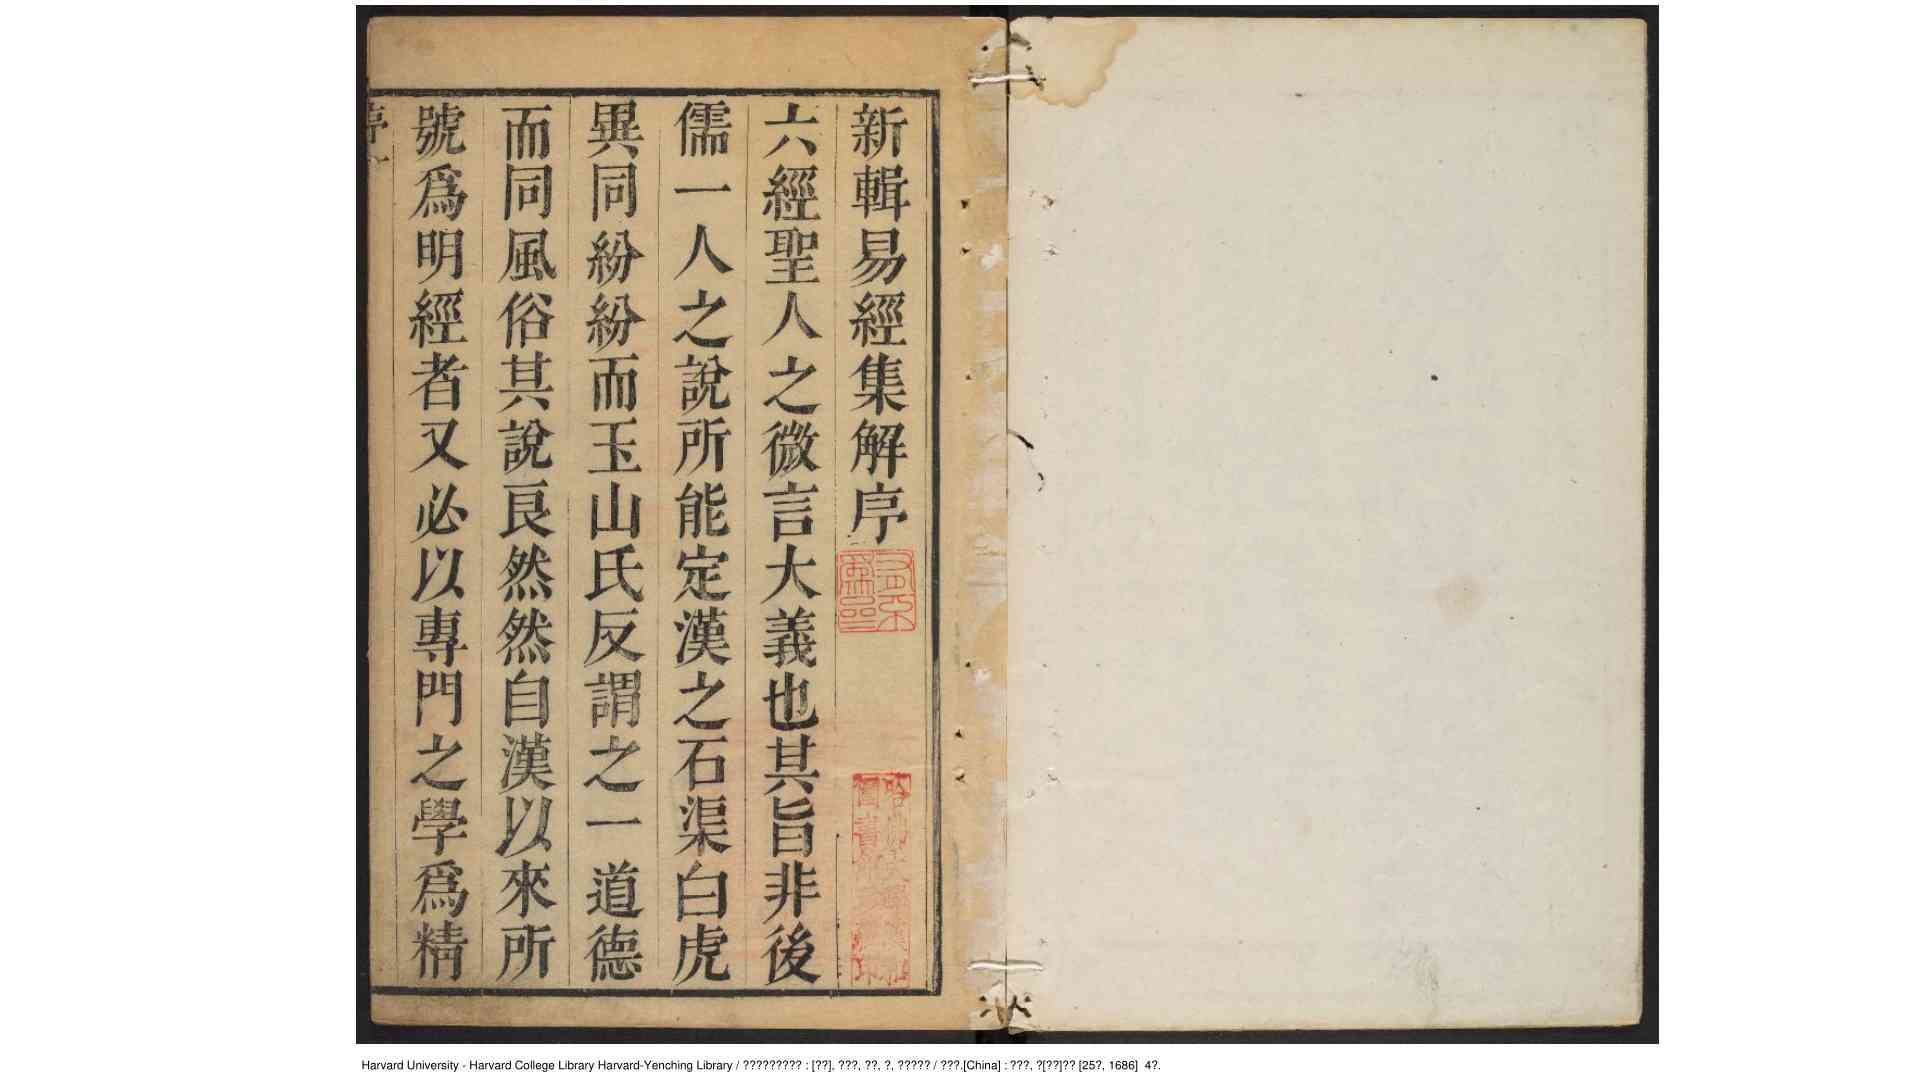 新輯易經集解序
六經聖人之微言大義也其旨非後
儒一人之說所能定漢之石渠白虎
異同紛紛而玉山氏反謂之一道德
而同風俗其說良然然自漢以來所
號爲明經者又必以專門之學爲精
Harvard University - Harvard College Library Harvard-Yenching Library / ????????? : [??], ???, ??, ?, ????? / ???.[China] : ???, ?[??]?? [25?, 1686]  4?.